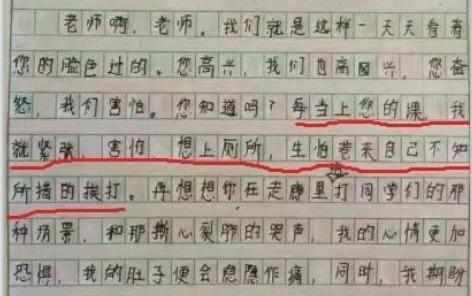 老师啊，老师。我们就是这样一天天看着
您的脸色过的。您高兴，我们也高兴，您奋
怒，我们害怕。您知道吗？每当上您的课，我
就紧张，害怕，想上厕所，生怕惹来自己不知
所措的挨打。再想想你在走廊里打同学们的那
种场景，和那撕心裂肺的哭声，我的心情更加
恐惧，我的肚子便会隐隐作痛，同时，我期盼